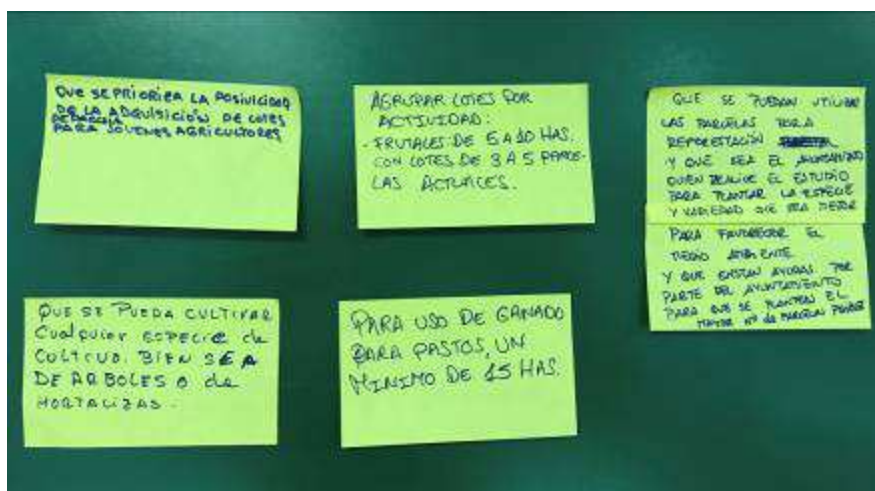 QUE SE PRIORICA LA POSIVICIDAD
DE LA ADQUISICIÓN DE LOTES
PARA JOVENES AGRICULTORES
AGRUPAR LOTES POR
ACTIVIDAD:
- FRUTALES DE 5 A 10 HAS.
CON LOTES DE 3 A 5 PARCE-
LAS ACTUALES.
QUE SE PUEDAN UTILIZAR
LAS PARCELAS PARA
REFORESTACIÓN
Y QUE SEA EL AYUNTAMIENTO
QUIEN REALICE EL ESTUDIO
PARA PLANTAR LA ESPECIE
Y VARIEDAD QUE SEA MEJOR
PARA FAVORECER EL
MEDIO AMBIENTE
Y QUE EXISTAN AYUDAS POR
PARTE DEL AYUNTAMIENTO
PARA QUE SE PLANTEN EL
MAYOR Nº de PARCELAS
QUE SE PUEDA CULTIVAR
Cualquier ESPECIE de
CULTIVO. BIEN SEA
DE ARBOLES O de
HORTALIZAS.
PARA USO DE GANADO
PARA PASTOS, UN
MINIMO DE 15 HAS.